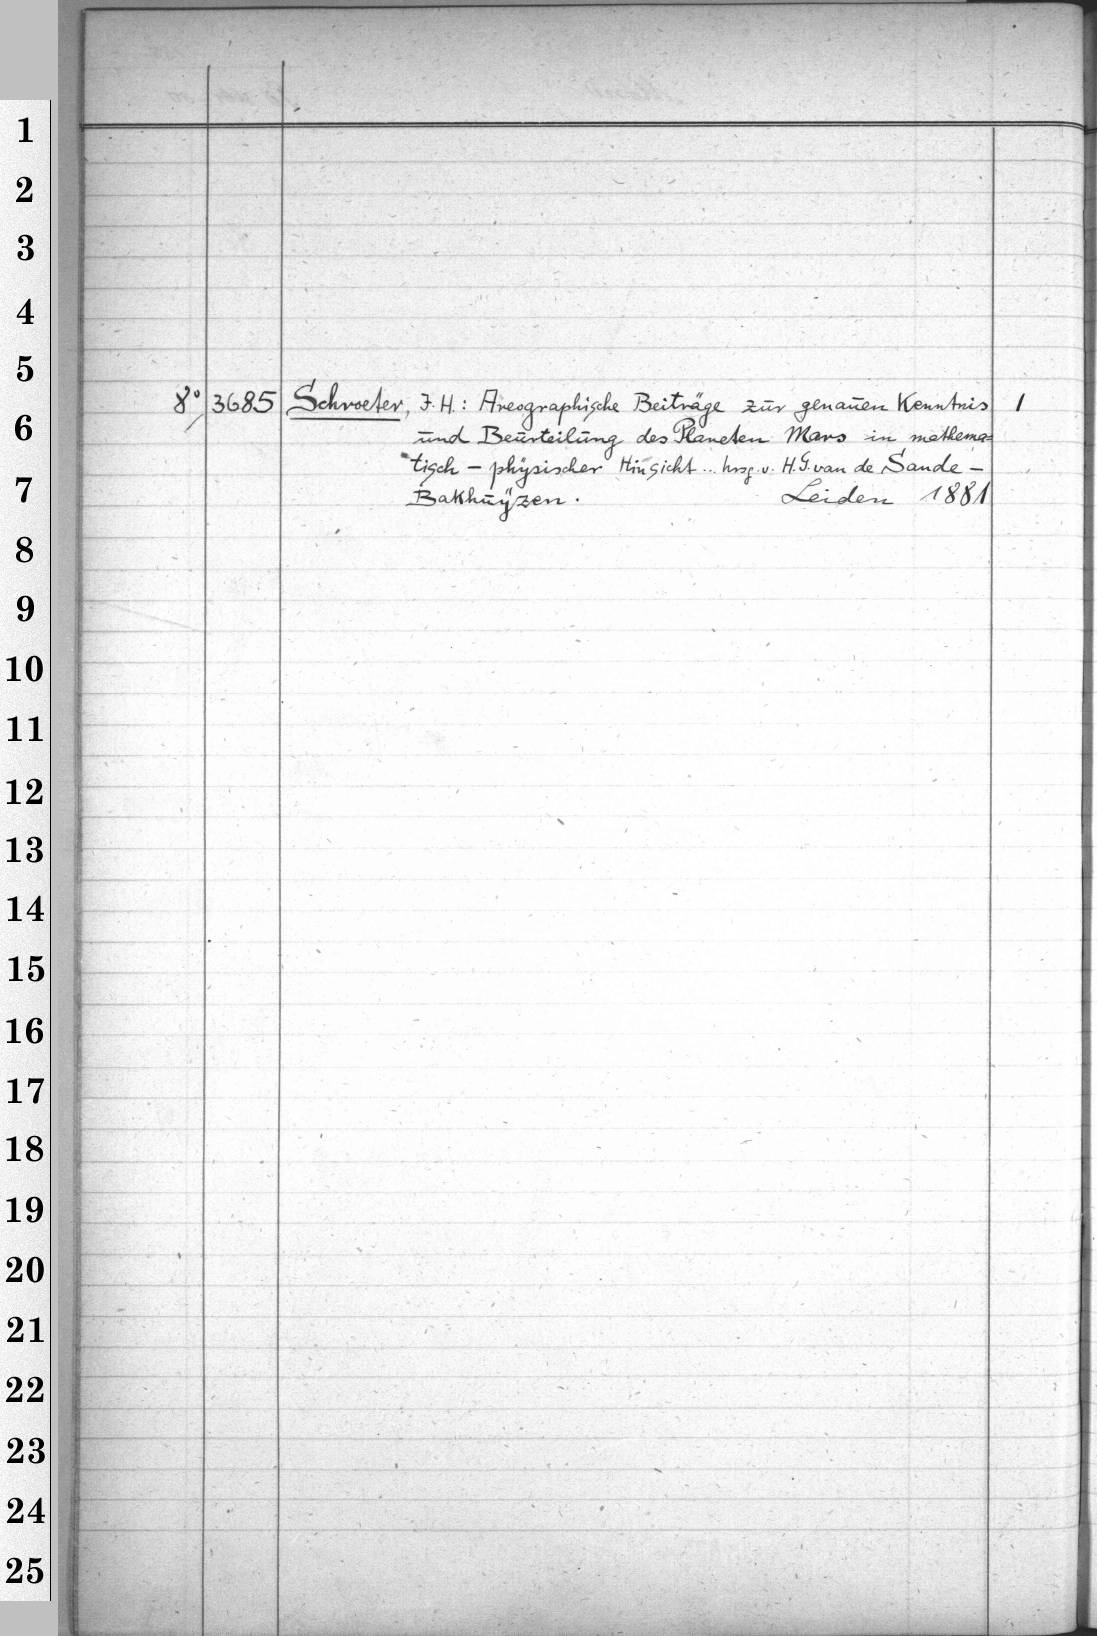 1
2
3
4
5
8° 3685 Schroeter, J. H.: Areographische Beiträge zur genauen Kenntnis 1
6
und Beurteilung des Planeten Mars in mathema=
tisch - physischer Hinsicht... hrsg. v. H. G. van de Sande -
7
Bakhuÿzen. Leiden 1881
8
9
10
11
12
13
14
15
16
17
18
19
20
21
22
23
24
25